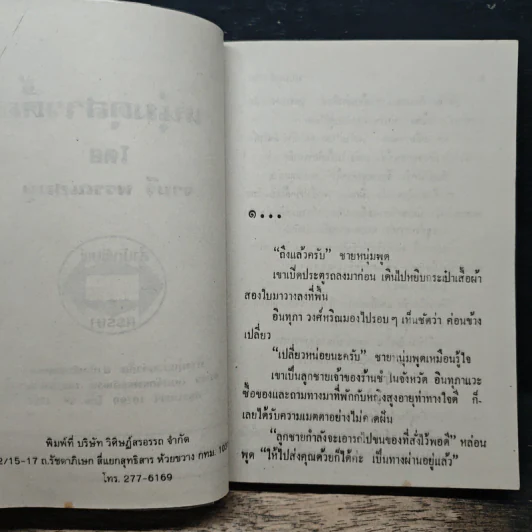 พิมพ์ที่ บริษัท วิศิษฎ์สรอรรถ จำกัด
2/15-17 ถ.รัชดาภิเษก สี่แยกสุทธิสาร ห้วยขวาง กทม.
โทร. 277-6169
๑...
“ถึงแล้วครับ” ชายหนุ่มพูด
เขาเปิดประตูรถลงมาก่อน เดินไปหยิบกระเป๋าเสื้อผ้า
สองใบมาวางลงที่พื้น
อินทุภา วงศ์หริณมองไปรอบๆ เห็นชัดว่า ค่อนข้าง
เปลี่ยว
“เปลี่ยวหน่อยนะครับ” ชายหนุ่มพูดเหมือนรู้ใจ
เขาเป็นลูกชายเจ้าของร้านชำในจังหวัด อินทุภาแวะ
ซื้อของและถามทางมาที่พักกับหญิงสูงอายุท่าทางใจดี ก็-
เลยได้รับความเมตตาอย่างไม่คาดฝัน
“ลูกชายกำลังจะเอารถไปขนของที่สั่งไว้พอดี” หล่อน
พูด “ให้ไปส่งคุณด้วยก็ได้ค่ะ เป็นทางผ่านอยู่แล้ว”